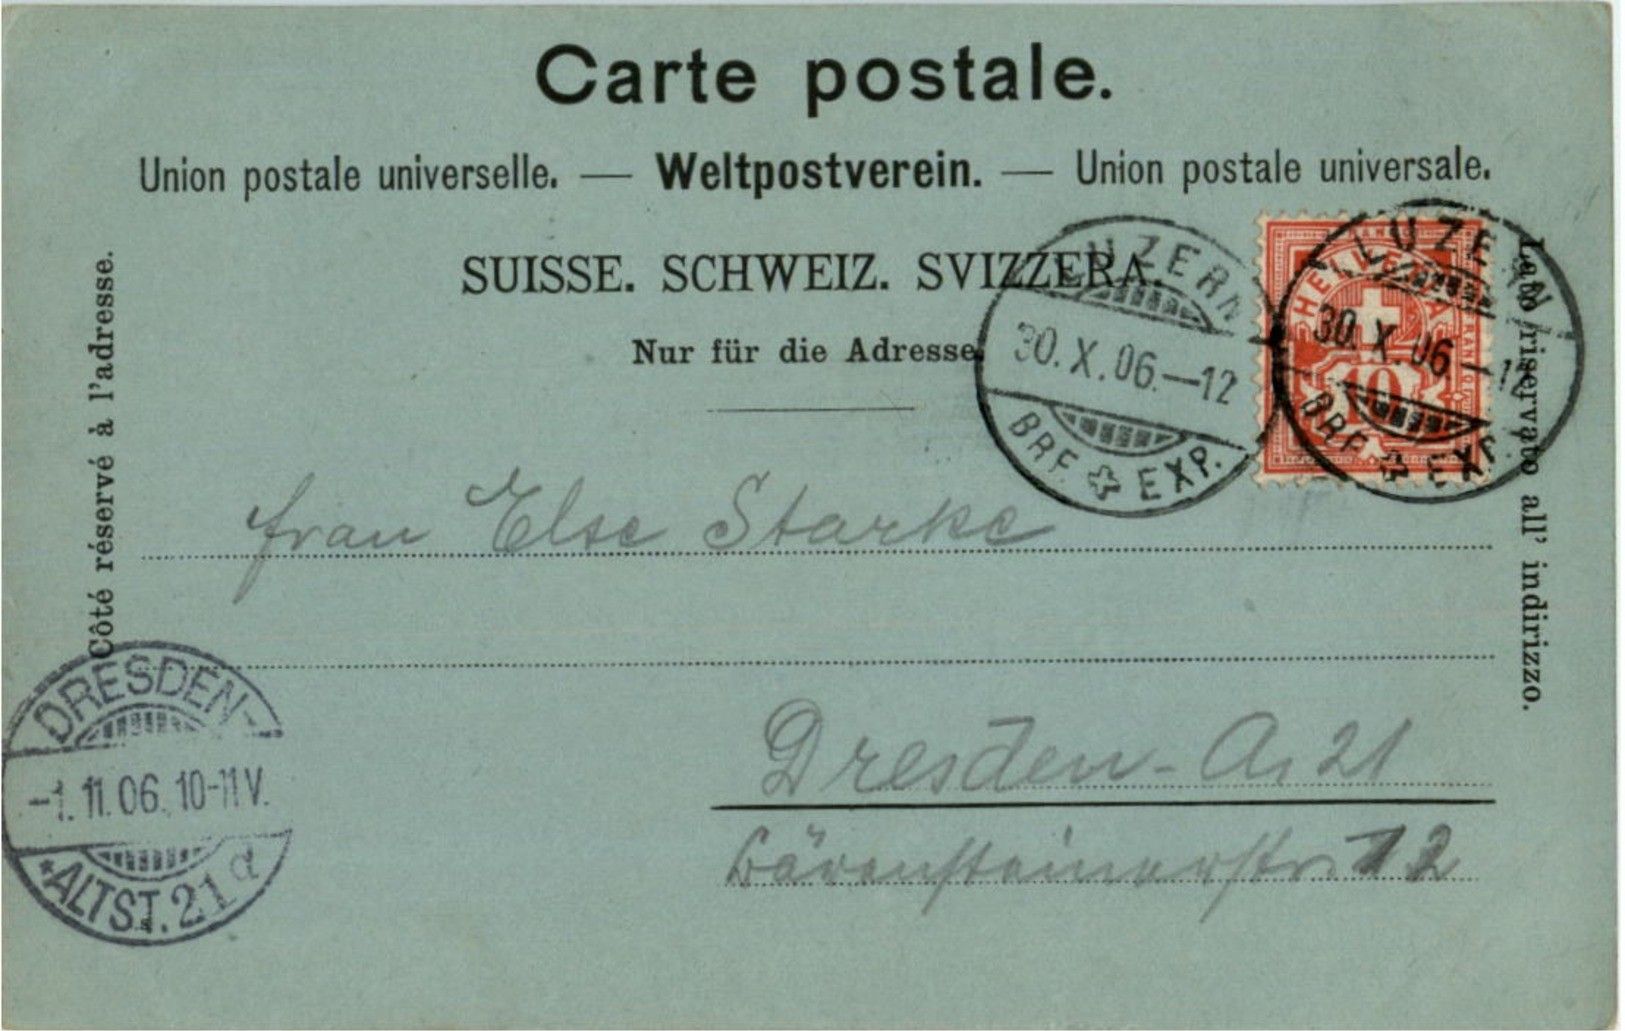 Carte postale.
Union postale universelle. — Weltpostverein. — Union postale universale.
SUISSE. SCHWEIZ. SVIZZERA.
Nur für die Adresse.
Côté réservé à l'adresse.
Lato riservato all' indirizzo.
LUZERN
30.X.06.—12
BRF. EXP.
HELVETIA
FRANCO
10
LUZERN
30.X.06.—12
BRF. EXP.
Frau Else Starke
Dresden-A. 21
Bärensteinerstr. 12
DRESDEN-
-1.11.06.10-11V.
*ALTST.21 d